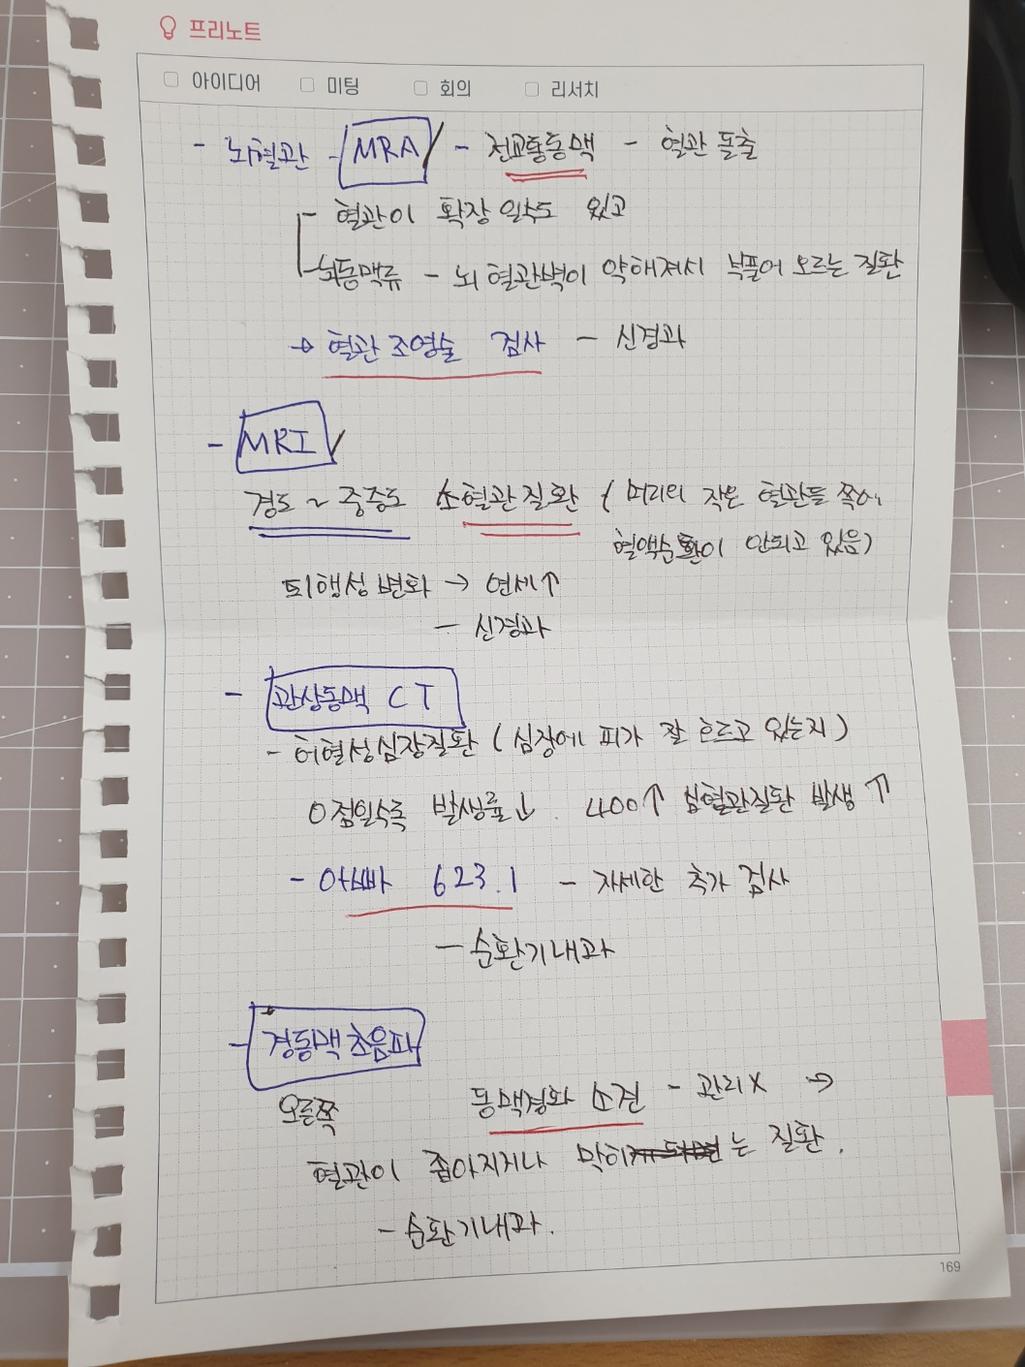 프리노트
아이디어 미팅 회의 리서치
- 뇌혈관 - MRA - 전교통동맥 - 혈관 돌출
- 혈관이 확장 일수도 있고
- 뇌동맥류 - 뇌 혈관벽이 약해져서 부풀어 오르는 질환
→ 혈관 조영술 검사 - 신경과
- MRI
경도 ~ 중증도 소혈관질환 ( 머리의 작은 혈관들 쪽이
혈액순환이 안되고 있음)
퇴행성 변화 → 연세↑
- 신경과
- 관상동맥 CT
- 허혈성심장질환 ( 심장에 피가 잘 흐르고 있는지 )
0점일수록 발생률↓. 400↑ 심혈관질환 발생 ↑
- 아빠 623.1 - 자세한 추가 검사
- 순환기내과
- 경동맥 초음파
오른쪽 동맥경화 소견 - 관리X →
혈관이 좁아지거나 막히는 질환.
- 순환기내과.
169